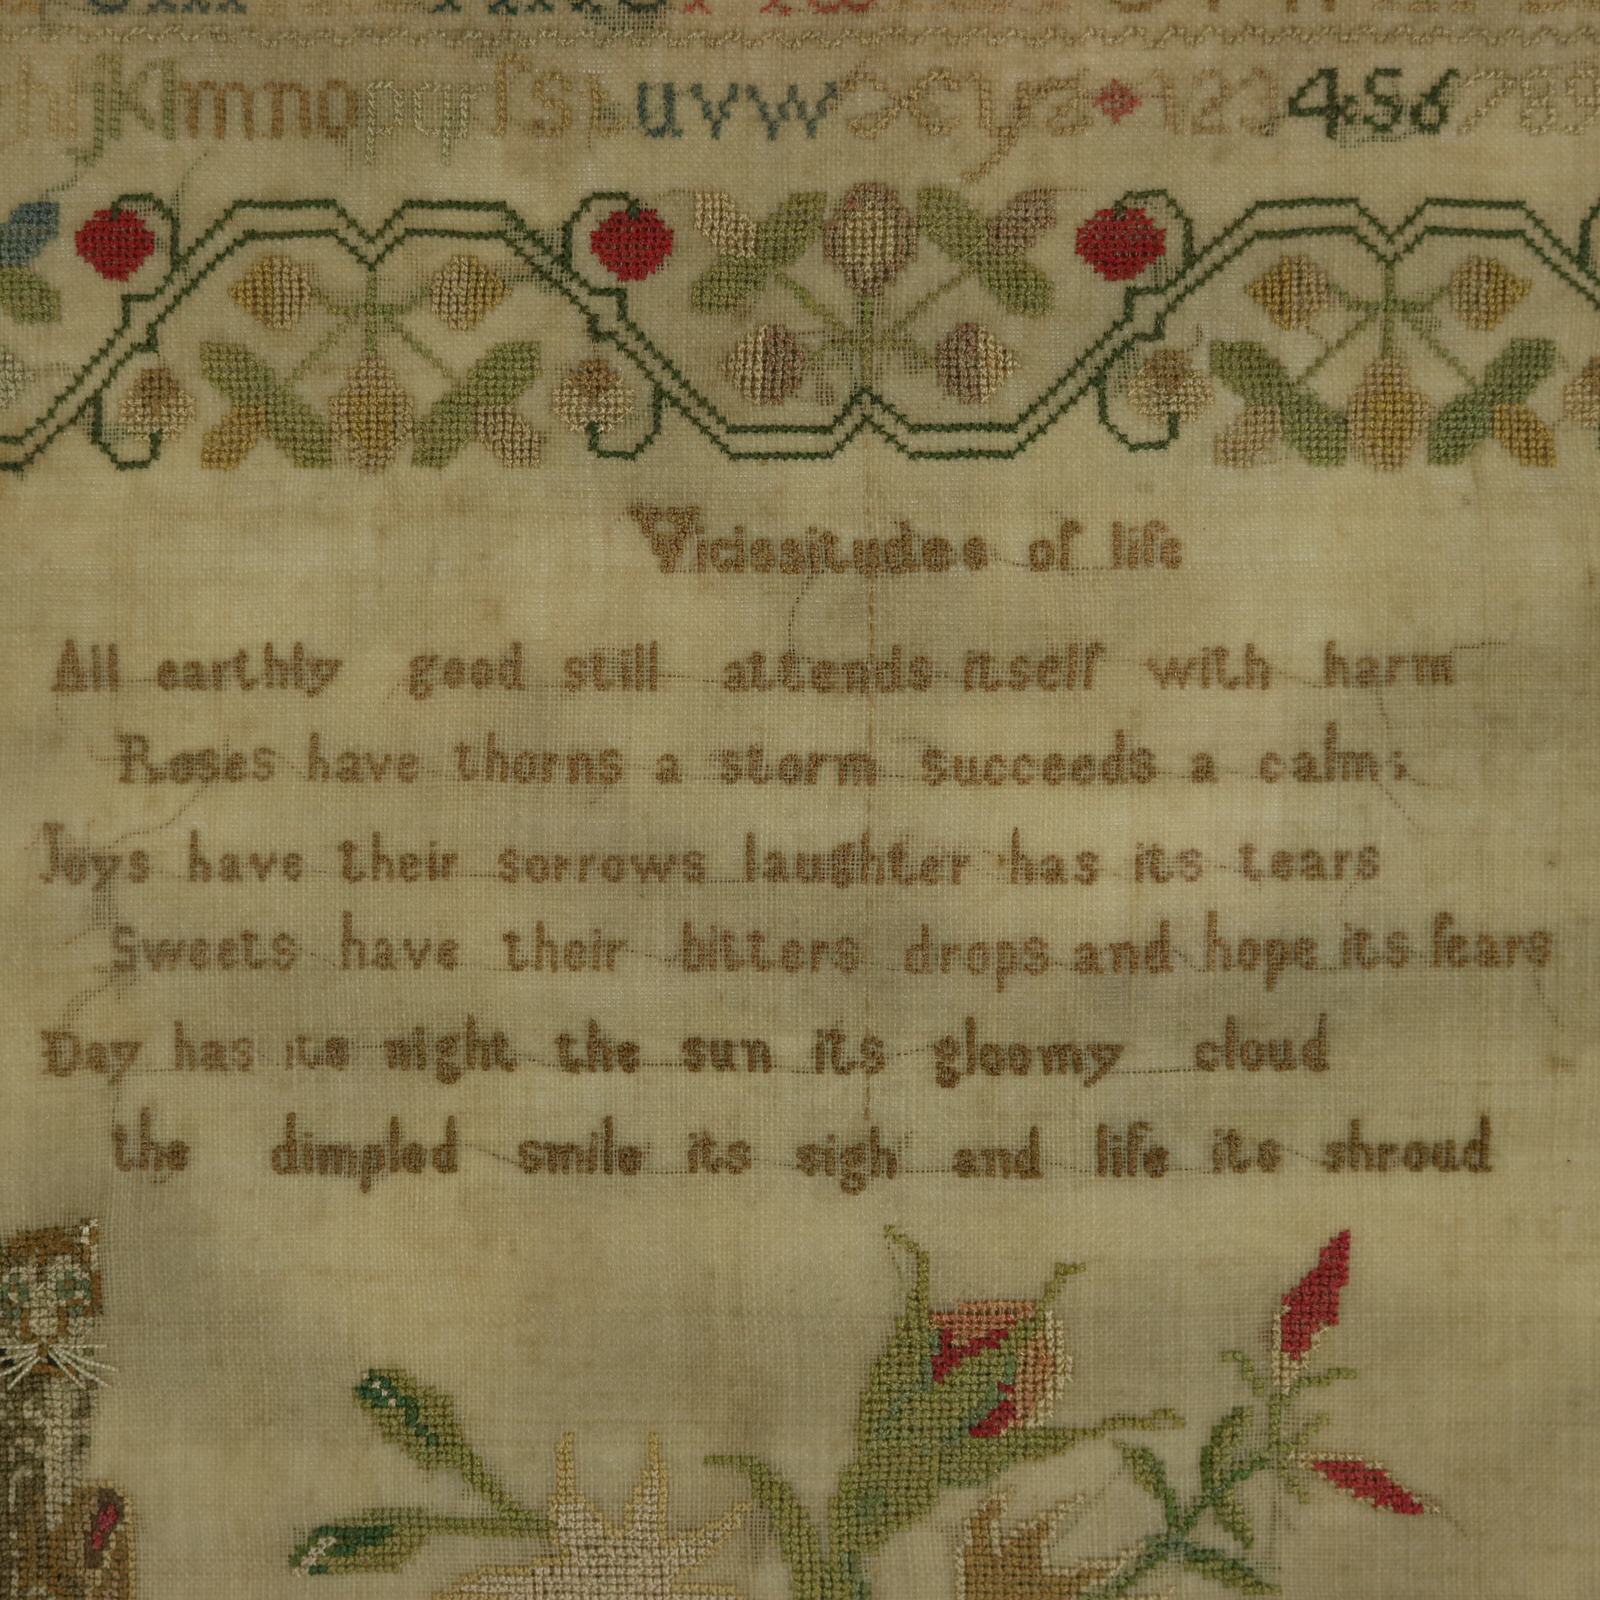 hijklmnopqrſstuvwxyz 123456789
Vicissitudes of life
All earthly good still attends itself with harm
Roses have thorns a storm succeeds a calm;
Joys have their sorrows laughter has its tears
Sweets have their bitters drops and hope its fears
Day has its night the sun its gloomy cloud
the dimpled smile its sigh and life its shroud